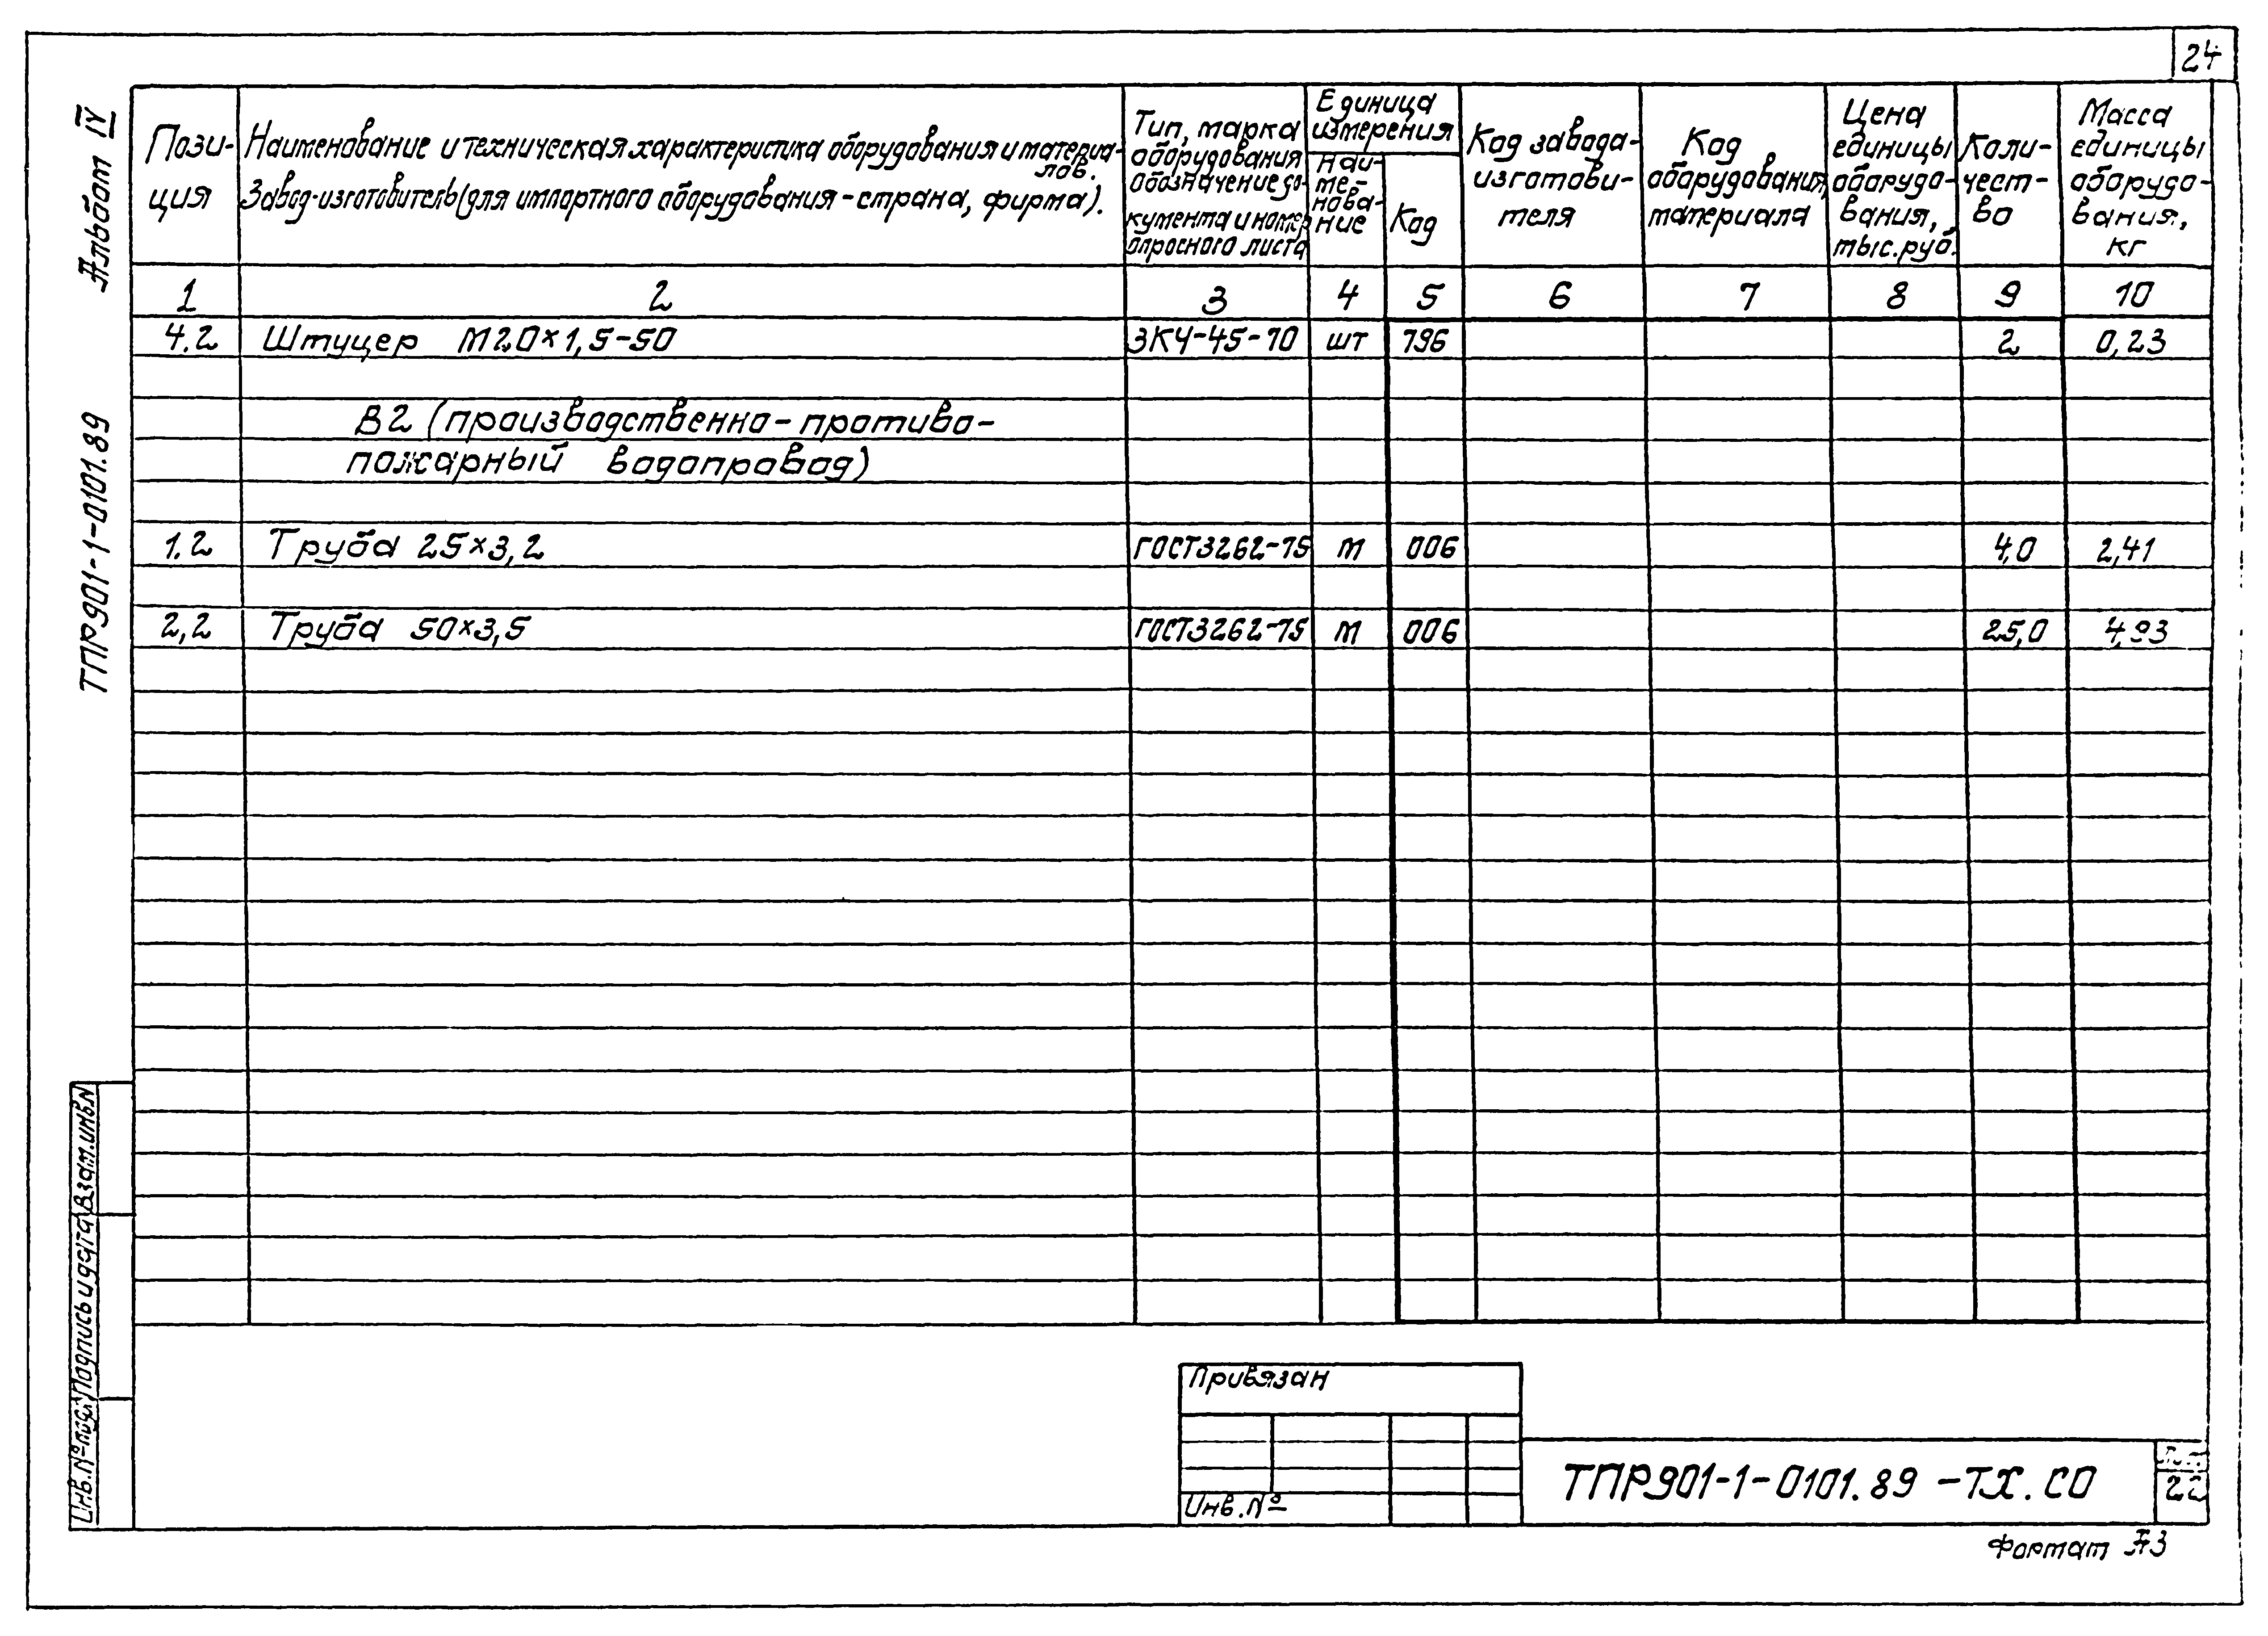 24
Альбом IV
ТПР901-1-0101.89
Пози-
ция
Наименование и техническая характеристика оборудования и материа-
лов.
Завод-изготовитель (для импортного оборудования - страна, фирма).
Тип, марка
оборудования
обозначение до-
кумента и номер
опросного листа
Единица
измерения
Наи-
ме-
нова-
ние
Код
Код завода-
изготови-
теля
Код
оборудования,
материала
Цена
единицы
оборудо-
вания,
тыс.руб.
Коли-
чест-
во
Масса
единицы
оборудо-
вания,
кг
1 2 3 4 5 6 7 8 9 10
4.2 Штуцер М20×1,5-50 ЗК4-45-70 шт 796 2 0,23
В2 (производственно-противо-
пожарный водопровод)
1.2 Труба 25×3,2 ГОСТ3262-75 м 006 4,0 2,41
2,2 Труба 50×3,5 ГОСТ3262-75 м 006 25,0 4,93
Взам.инв.N
Подпись и дата
Инв.№ подл.
Привязан
Инв.№
ТПР901-1-0101.89 -ТХ.СО
Лист
22
Формат А3